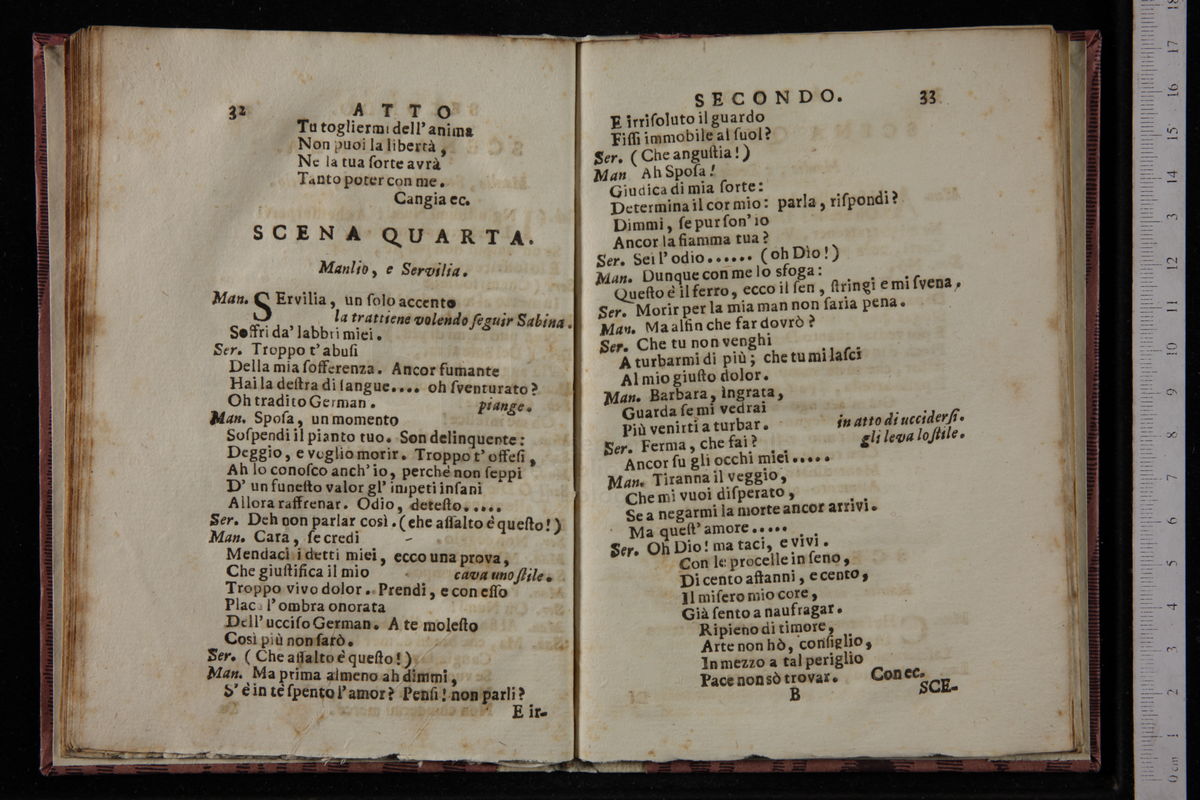 32 ATTO
Tu togliermi dell' anima
Non puoi la libertà,
Ne la tua ſorte avrà
Tanto poter con me.
Cangia ec.
SCENA QUARTA.
Manlio, e Servilia.
Man. SErvilia, un ſolo accento
la trattiene volendo ſeguir Sabina.
Soffri da' labbri miei.
Ser. Troppo t' abuſi
Della mia ſofferenza. Ancor fumante
Hai la deſtra di ſangue.... oh ſventurato?
Oh tradito German. piange.
Man. Spoſa, un momento
Soſpendi il pianto tuo. Son delinquente:
Deggio, e voglio morir. Troppo t' offeſi,
Ah lo conoſco anch' io, perchè non ſeppi
D' un funeſto valor gl' impeti inſani
Allora raffrenar. Odio, deteſto.....
Ser. Deh non parlar così. (che aſſalto è queſto!)
Man. Cara, ſe credi
Mendaci i detti miei, ecco una prova,
Che giuſtifica il mio cava uno ſtile.
Troppo vivo dolor. Prendi, e con eſſo
Placa l' ombra onorata
Dell' ucciſo German. A te moleſto
Così più non ſarò.
Ser. (Che aſſalto è queſto!)
Man. Ma prima almeno ah dimmi,
S' è in tè ſpento l' amor? Penſi! non parli?
E ir-
SECONDO. 33
E irriſoluto il guardo
Fiſſi immobile al ſuol?
Ser. (Che anguſtia!)
Man Ah Spoſa!
Giudica di mia ſorte:
Determina il cor mio: parla, riſpondi?
Dimmi, ſe pur ſon' io
Ancor la fiamma tua?
Ser. Sei l' odio...... (oh Dio!)
Man. Dunque con me lo sfoga:
Queſto è il ferro, ecco il ſen, ſtringi e mi ſvena.
Ser. Morir per la mia man non ſaria pena.
Man. Ma alfin che far dovrò?
Ser. Che tu non venghi
A turbarmi di più; che tu mi laſci
Al mio giuſto dolor.
Man. Barbara, ingrata,
Guarda ſe mi vedrai
Più venirti a turbar. in atto di ucciderſi.
Ser. Ferma, che fai? gli leva lo ſtile.
Ancor ſu gli occhi miei.....
Man. Tiranna il veggio,
Che mi vuoi diſperato,
Se a negarmi la morte ancor arrivi.
Ma queſt' amore.....
Ser. Oh Dio! ma taci, e vivi.
Con le procelle in ſeno,
Di cento affanni, e cento,
Il miſero mio core,
Già ſento a naufragar.
Ripieno di timore,
Arte non hò, conſiglio,
In mezzo a tal periglio
Pace non sò trovar. Con ec.
B SCE-
0 cm 1 2 3 4 5 6 7 8 9 10 11 12 13 14 15 16 17 18